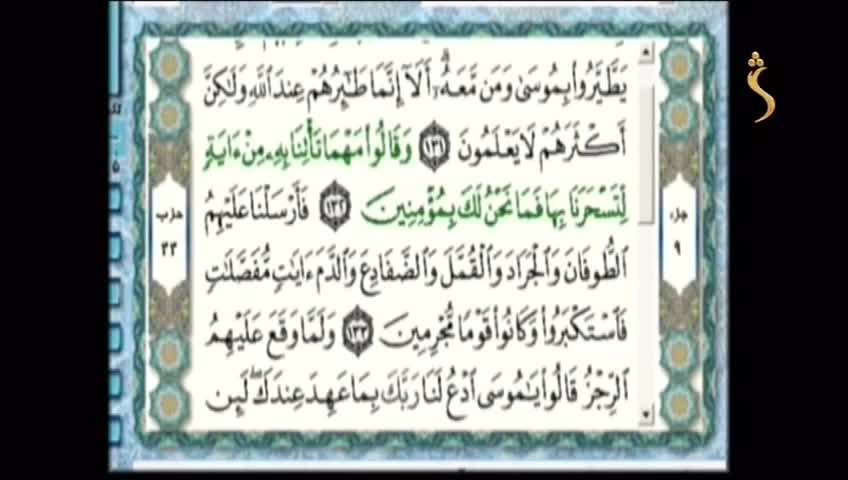 يَطَّيَّرُوا۟ بِمُوسَىٰ وَمَن مَّعَهُۥٓ ۗ أَلَآ إِنَّمَا طَـٰٓئِرُهُمْ عِندَ ٱللَّهِ وَلَـٰكِنَّ
أَكْثَرَهُمْ لَا يَعْلَمُونَ ١٣١ وَقَالُوا۟ مَهْمَا تَأْتِنَا بِهِۦ مِنْ ءَايَةٍ
لِّتَسْحَرَنَا بِهَا فَمَا نَحْنُ لَكَ بِمُؤْمِنِينَ ١٣٢ فَأَرْسَلْنَا عَلَيْهِمُ
ٱلطُّوفَانَ وَٱلْجَرَادَ وَٱلْقُمَّلَ وَٱلضَّفَادِعَ وَٱلدَّمَ ءَايَـٰتٍ مُّفَصَّلَـٰتٍ
فَٱسْتَكْبَرُوا۟ وَكَانُوا۟ قَوْمًا مُّجْرِمِينَ ١٣٣ وَلَمَّا وَقَعَ عَلَيْهِمُ
ٱلرِّجْزُ قَالُوا۟ يَـٰمُوسَى ٱدْعُ لَنَا رَبَّكَ بِمَا عَهِدَ عِندَكَ ۖ لَئِن
جزء
٩
حزب
٣٣